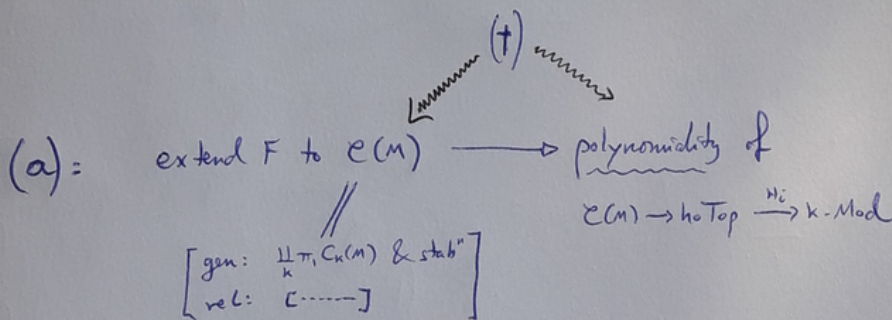 (†)
(a): extend F to C(M) → polynomiality of
C(M) → hoTop →^{Hi} k-Mod
gen: ∐_k π₁ C_k(M) & stabⁿ
rel: [------]